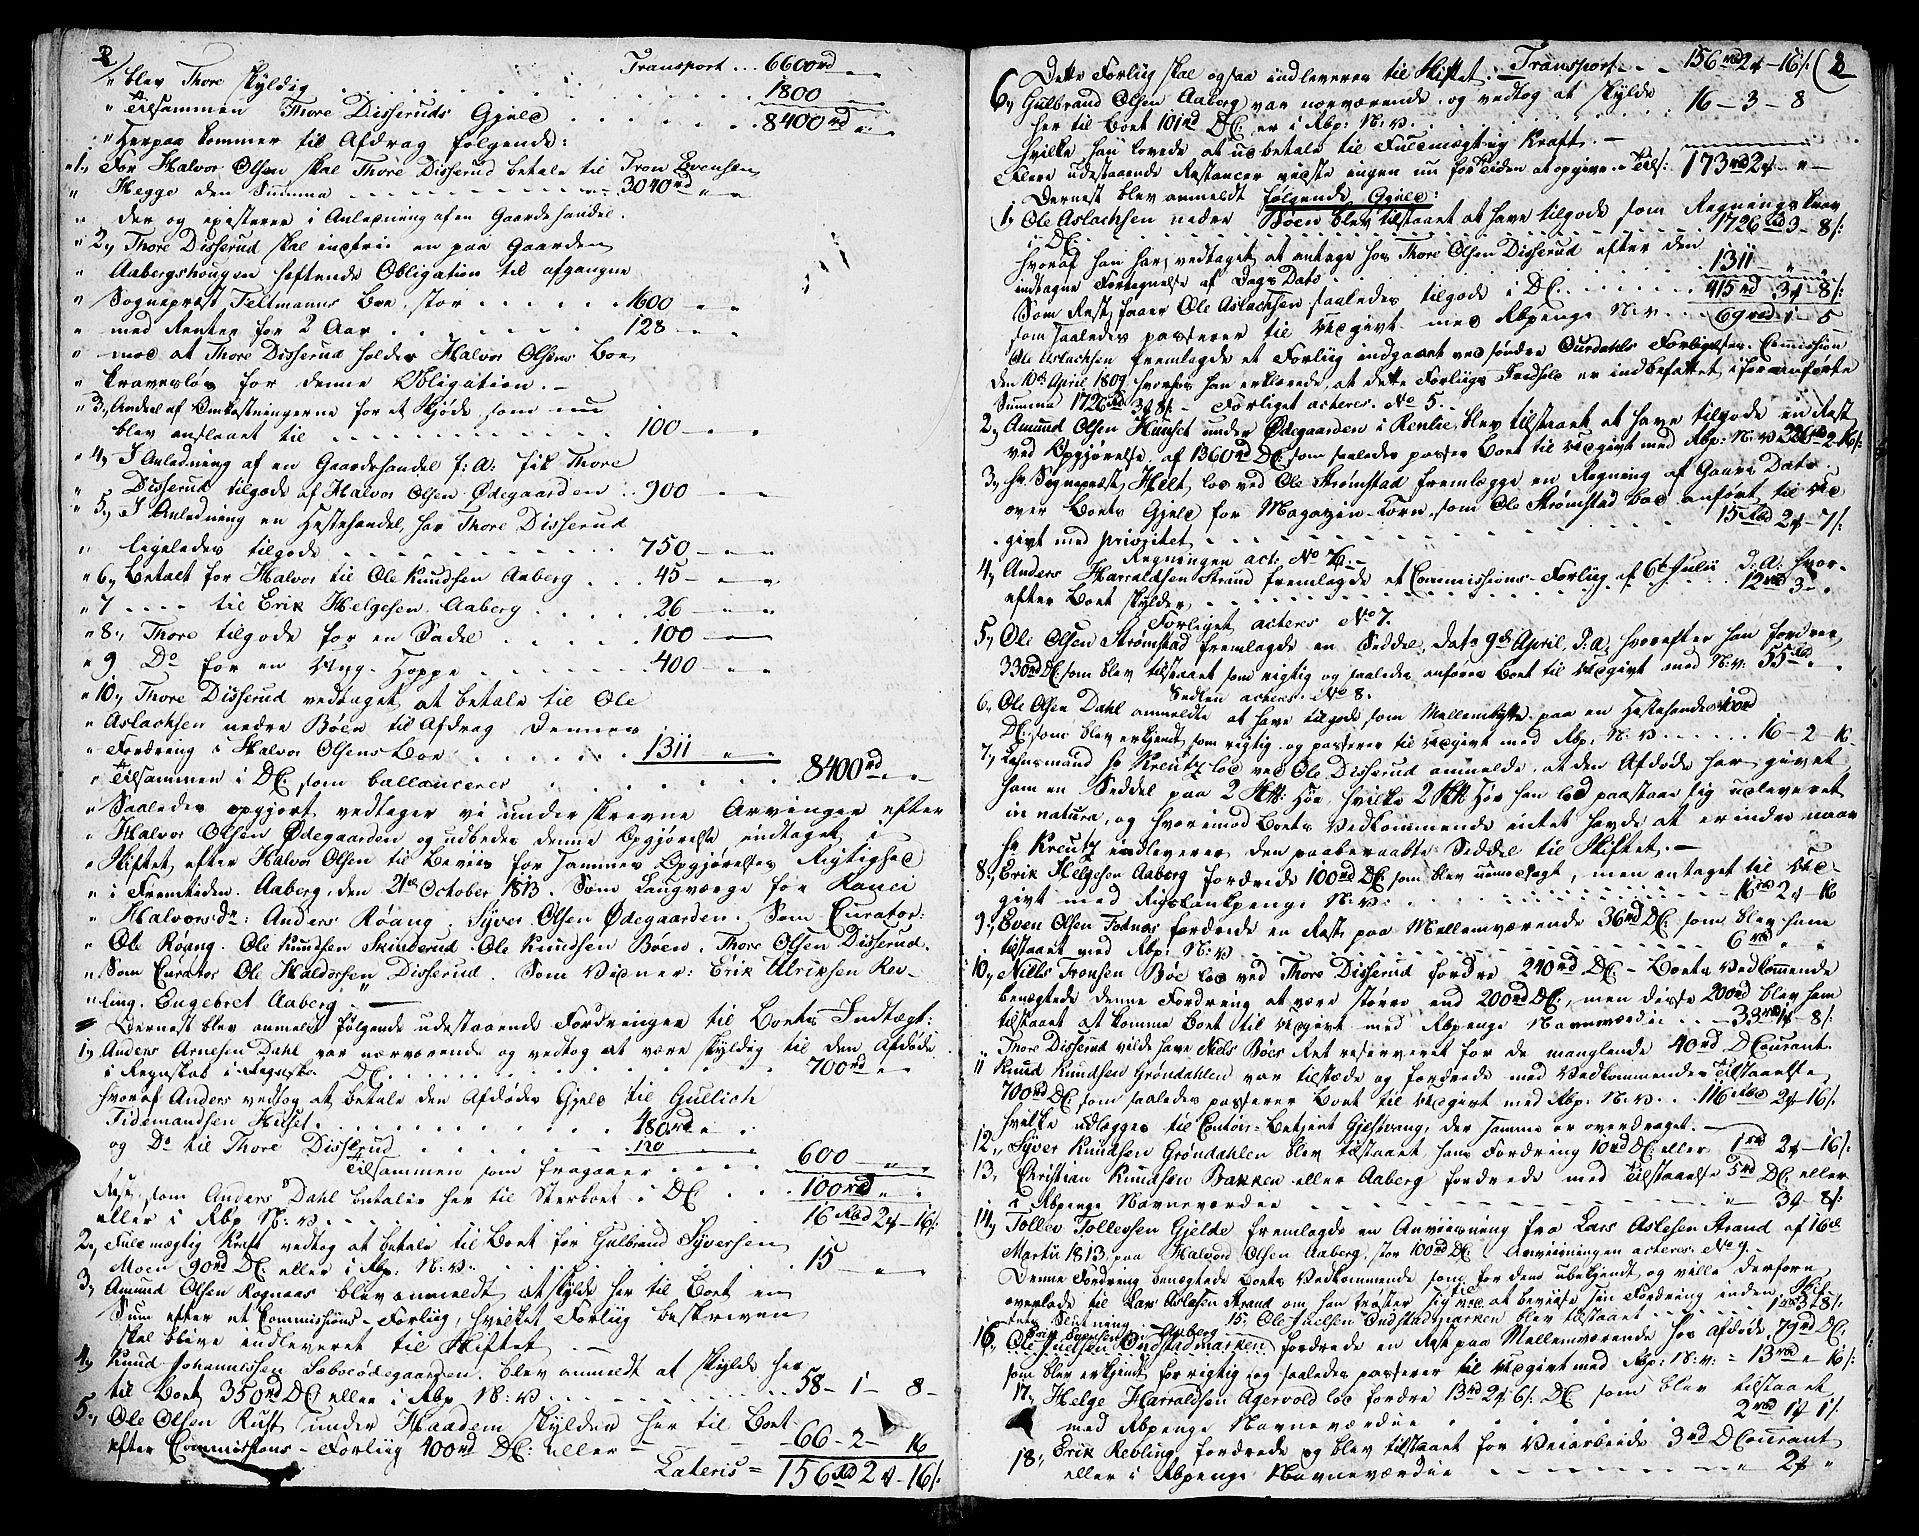 2
Transport .. 6600rd „ „
„ blev Thore skyldig . . . . 1800
„ Tilsammen Thore Disseruds Gjeld . . . . 8400rd „ „
„ Herpaa kommer til Afdrag følgende:
„ 1, For Halvor Olsen skal Thore Disserud betale til Tron Evensen
„ Hegge den Summa . . . . 3040rd „ „
„ der og existerer i Anledning af en Gaardehandel.
„ 2, Thore Disserud skal indfrie en paa Gaarden
„ Aabergshougen heftende Obligation til afgangne
„ Sogneprest Feltmanns Boe, stor . . . . 1600 „ „
„ med Renter for 2 Aar . . . . 128 „ „
„ mod at Thore Disserud holder Halvor Olsens Boe
„ kravesløs for denne Obligation. —
„ 3, Andeel af Omkostningerne for et Skjøde, som nu
blev anslaaet til . . . . 100 — „ — „
„ 4, I Anledning af en Gaardehandel f: A: fik Thore
„ Disserud tilgode af Halvor Olsen Ødegaarden .. 900 — „ — „
„ 5, I Anledning en Hestehandel, har Thore Disserud
„ ligeledes tilgode . . . . 750 — „ — „
„ 6, Betalt for Halvor til Ole Knudsen Aaberg . . . 45 — „ — „
„ 7 - - - - til Erik Helgesen Aaberg . . . . 26 „ „
„ 8, Thore tilgode for en Sadel . . . . 100 — „ —
„ 9 Do for en Ung-Hoppe . . . . 400 — „ —
„ 10, Thore Disserud vedtaget at betale til Ole
„ Aslachsen nedre Bøen til Afdrag dennes
„ Fordring i Halvor Olsens Boe . . . . 1311 „ „
„ Tilsammen i DC. som ballancerer . . . . 8400rd „ „
„ Saaledes opgjort vedtager vi underskrevne Arvinger efter
„ Halvor Olsen Ødegaarden og udbedes denne Opgjørelse indtaget i
„ Skiftet efter Halvor Olsen til Beviis for sammes Opgjørelses Rigtighed
„ i Fremtiden. Aaberg, den 21de October 1813. Som Laugværge for Ranei
„ Halvorsdr: Anders Røang. Syver Olsen Ødegaarden. Som Curator:
„ Ole Røang. Ole Knudsen Skinderud. Ole Knudsen Bøen. Thore Olsen Disserud.
„ Som Curator Ole Haldorsen Disserud. Som Vidner: Erik Ulriksen Reb-
„ ling. Engebret Aaberg. —
Dernest blev anmeldt følgende udestaaende Fordringer til Boets Indtægt:
1, Anders Arnesen Dahl var nærværende og vedtog at være skyldig til den Afdøde
i DC. . . . . 700rd „
hvoraf Anders vedtog at betale den Afdødes Gjeld til Gullich
Tidemandsen Hilset . . . . 480rd „ „
og Do til Thore Disserud . . . . 120
Tilsammen som fragaaer . . . . 600 „ „
Rest, som Anders Dahl betaler her til Sterboet i DC. . . 100rd „ „
eller i Rbp N: v. . . . . 16 Rbd 2ƒ — 16/:
2, Fuldmægtig Kraft vedtog at betale til Boet for Gulbrand Syversen
Moen 90rd DC. eller i Rbp. N: v: . . . . 15 — „ —
3, Amund Olsen Rognaas blev anmeldt at skylde her til Boet en
Sum efter et Commissions-Forliig, hvilket Forliig beskreven
skal blive indleveret til Skiftet —
4, Knud Johannessen Sebuødegaarden blev anmeldt at skylde her
til Boet 350rd DC. eller i Rbp. N: v . . . . 58 - 1 - 8 -
5, Ole Olsen Rust under Haadem skylder her til Boet
efter Commissions-Forliig 400rd DC. eller — 66 - 2 - 16
Lateris = 156 Rbd 2ƒ - 16/:
Dette Forliig skal ogsaa indleveres til Skiftet. — Transport . . 156rd 2ƒ - 16/: (2
6, Gulbrand Olsen Aaberg var nærværende og vedtog at skylde
her til Boet 101rd DC. er i Rbp. N: v. . . . . 16 - 3 - 8
hvilke han lovede at udbetale til Fuldmægtig Kraft. —
Flere udestaaende Restancer vidste ingen nu for Tiden at opgive. Tils: 173rd 2ƒ - „ -
Dernest blev anmeldt følgende Gjeld:
1, Ole Aslachsen nedre Bøen blev tilstaaet at have tilgode som Regnings krav
i DC. . . . . 1726rd 3 - 8/:
hvoraf han har vedtaget at antage hos Thore Olsen Disserud efter den
indtagne Fortegnelse af Dags Dato . . . . 1311 „ „
Som Rest faaer Ole Aslachsen saaledes tilgode i DC. . . . . 415rd 3ƒ - 8/:
som saaledes passerer til Udgivt med Rbpenge N: v. . . . 69rbd 1 - 5
Ole Aslachsen fremlagde et Forliig indgaaet ved søndre Ourdahls Forligelses-Comission
den 10de April 1809 hvorfor han erklærede, at dette Forliigs Indhold er indbefattet i foranførte
Summa 1726rd 3ƒ 8/: — Forliget acteres No 5.
2, Amund Olsen Hunset under Ødegaarden i Renlie, blev tilstaaet at have tilgode en Rest
ved Opgjørelse af 1360rd DC. som saaledes passer Boet til Udgivt med Rbp. N: v. 226rd 2 - 16/:
3, Hr Sogneprest Hilt lod ved Ole Strømstad fremlægge en Regning af Gaars Dato
over Boets Gjeld for Magazin-Korn, som Ole Strømstad bad anført til Ud
givt med prioritet . . . . 15 Rbd 2ƒ - 7/:
Regningen act: No 6. —
4, Anders Harraldsen Strand fremlagde et Commissions-Forliig af 6te Julii d. A: hvor-
efter Boet skylder . . . . 12rbd 3 „
Forliget acteres No 7.
5, Ole Olsen Strømstad fremlagde en Seddel, dat. 9de April, d. A: hvorefter han fordrer
330rd DC. som blev tilstaaet som rigtig og saaledes anføres Boet til Udgivt med N: v: 55rbd „ „
Sedlen acteres No 8.
6, Ole Olsen Dahl anmeldte at have tilgode som Mellembytte paa en Hestehandel 100rd
DC. som blev erkjendt som rigtig og passerer til Udgivt med Rbp. N: v . . . . 16 - 2 - 16
7, Lensmand Hr Kreutz lod ved Ole Disserud anmelde, at den Afdøde har givet
ham en Seddel paa 2 Skt: Høe, hvilke 2 Skt Høe han lod paastaae sig udleveret
in natura, og hvorimod Boets Vedkommende intet havde at erindre naar
Hr Kreutz indleverer den paaberaabte Seddel til Skiftet. —
8, Erik Helgesen Aaberg fordrede 100rd DC. som blev uimodsagt, men antaget til Ud-
givt med Rigsbankpenge N: v: . . . . 16rbd 2ƒ - 16
9, Even Olsen Fodnæs fordrede en Rest paa Mellemværende 36rd DC. som blev ham
tilstaaet med Rbp. N: v . . . . 6rbd „ „
10, Niels Tronsen Bøe lod ved Thore Disserud fordre 240rd DC. — Boets Vedkommende
benægtede denne Fordring at være større end 200rd DC., men disse 200rd blev ham
tilstaaet at komme Boet til Udgivt med Rbpenge Navneværdie . . 33rbd 1ƒ - 8/:
Thore Disserud vilde have Niels Bøes Ret reserveret for de manglende 40rd DCourant.
11 Knud Knudsen Grøndahlen var tilstæde og fordrede med Vedkommendes Tilstaaelse
700rd DC. som saaledes passerer Boet til Udgivt med Rbp. N: v . . 116 Rbd 2ƒ - 16/:
hvilke udlægges til Contoir-Betjent Gjelsvang, der samme er overdraget. —
12, Syver Knudsen Grøndahlen blev tilstaaet hans Fordring 10rd DC. eller 1rd 2ƒ - 16/:
13, Christian Knudsen Bakken eller Aaberg fordrede med Tilstaaelse 5rd DC. eller
i Rbpenge Navneværdie . . . . 3ƒ - 8/:
14, Tollev Tollevsen Gjelde fremlagde en Anviisning fra Lars Aslesen Strand af 16de
Martii 1813 paa Halvord Olsen Aaberg, stor 100rd DC. — Anviisningen acteres No 9.
Denne Fordring benægtede Boets Vedkommende som for dem ubekjendt, og ville derfore
overlade til Lars Aslesen Strand om han trøster sig til at beviise sin Fordring inden Skif-
tets Slutning. 15, Ole Juelsen Ondstadmarken tilstaaet . . . 1rd 3 - 8/:
16, Aaberg fordrede en Rest paa Mellemværende hos Afdøde, 79rd DC.
som blev erkjendt for rigtig, og saaledes passerer til Udgivt med Rbp. N: v: = 13rbd „ 16/:
17, Helge Harraldsen Agervold lod fordre 13rd 2ƒ 6/: DC som blev tilstaaet
med Rbpenge Navneværdie . . . . 2rbd 1ƒ 1/:
18, Erik Rebling fordrede og blev tilstaaet for Veiarbeide 3rd DCourant
eller i Rbpenge Navneværdie . . . . „ 2ƒ „